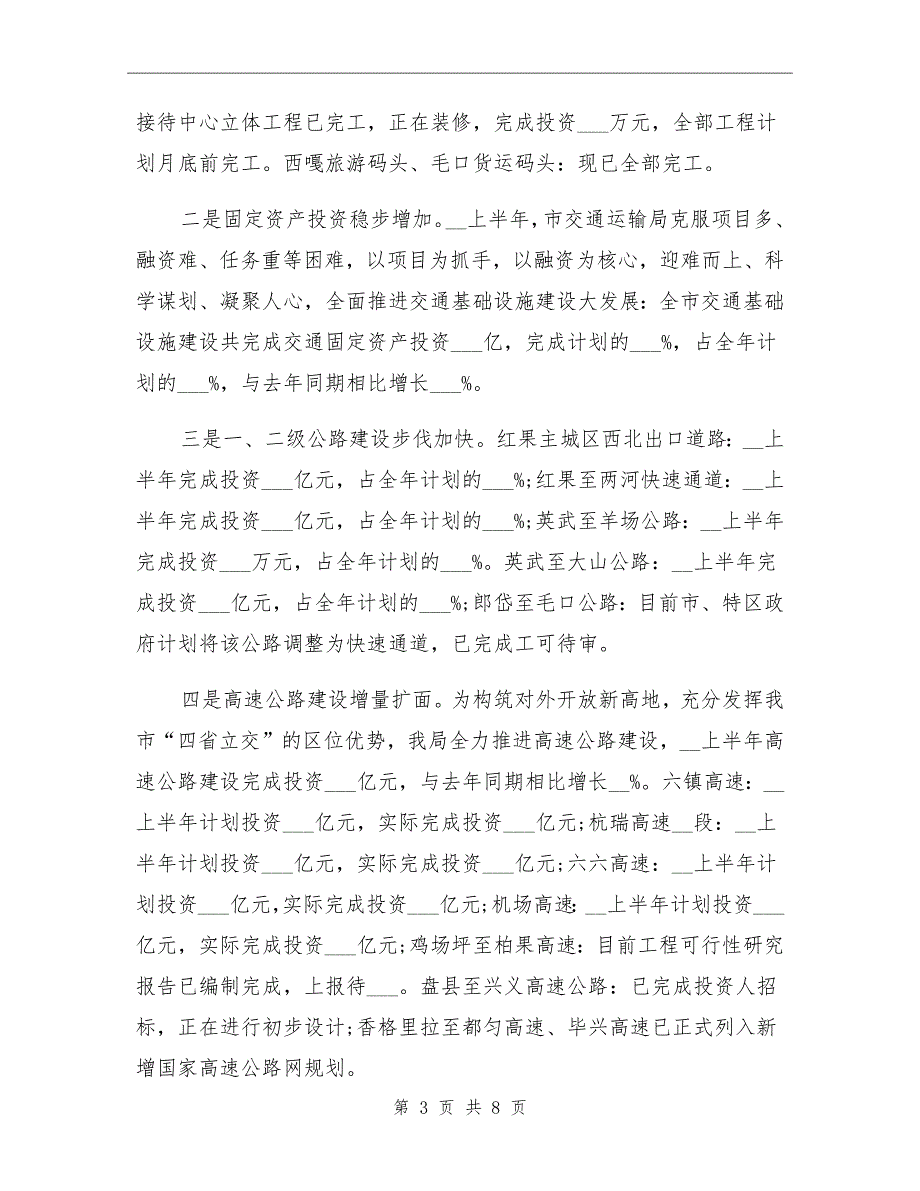 接待中心立体工程已完工，正在装修，完成投资___万元，全部工程计
划月底前完工。西嘎旅游码头、毛口货运码头：现已全部完工。
二是固定资产投资稳步增加。__上半年，市交通运输局克服项目多、
融资难、任务重等困难，以项目为抓手，以融资为核心，迎难而上、科
学谋划、凝聚人心，全面推进交通基础设施建设大发展：全市交通基础
设施建设共完成交通固定资产投资___亿，完成计划的___%，占全年计
划的___%，与去年同期相比增长___%。
三是一、二级公路建设步伐加快。红果主城区西北出口道路：__上
半年完成投资___亿元，占全年计划的___%;红果至两河快速通道：__上
半年完成投资___亿元，占全年计划的___%;英武至羊场公路：__上半年
完成投资___万元，占全年计划的___%。英武至大山公路：__上半年完
成投资___亿元，占全年计划的___%;郎岱至毛口公路：目前市、特区政
府计划将该公路调整为快速通道，已完成工可待审。
四是高速公路建设增量扩面。为构筑对外开放新高地，充分发挥我
市“四省立交”的区位优势，我局全力推进高速公路建设，__上半年高
速公路建设完成投资___亿元，与去年同期相比增长__%。六镇高速：__
上半年计划投资___亿元，实际完成投资___亿元;杭瑞高速__段：__上
半年计划投资___亿元，实际完成投资___亿元;六六高速：__上半年计
划投资___亿元，实际完成投资___亿元;机场高速：__上半年计划投资___
亿元，实际完成投资___亿元;鸡场坪至柏果高速：目前工程可行性研究
报告已编制完成，上报待___。盘县至兴义高速公路：已完成投资人招
标，正在进行初步设计;香格里拉至都匀高速、毕兴高速已正式列入新
增国家高速公路网规划。
第 3 页 共 8 页